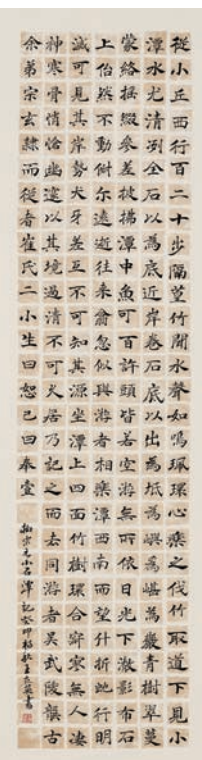 從小丘西行百二十步隔篁竹聞水聲如鳴珮環心樂之伐竹取道下見小
潭水尤清冽全石以為底近岸卷石底以出為坻為嶼為嵁為巖青樹翠蔓
蒙絡摇綴參差披拂潭中魚可百許頭皆若空游無所依日光下澈影布石
上佁然不動俶尔遠逝往来翕忽似與游者相樂潭西南而望斗折蛇行明
滅可見其岸勢犬牙差互不可知其源坐潭上四面竹樹環合寂寥無人凄
神寒骨悄愴幽邃以其境過清不可久居乃記之而去同游者吴武陵龔古
余弟宗玄隸而從者崔氏二小生曰恕己曰奉壹
柳宗元小石潭記癸卯 書